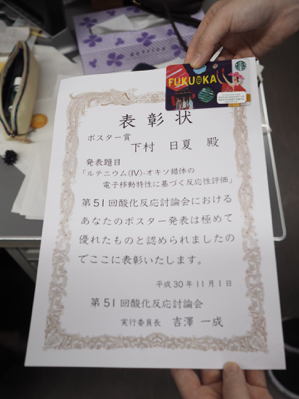 FUKUOKA
表彰状
ポスター賞
下村 日夏 殿
発表題目
「ルテニウム(IV)-オキソ錯体の
電子移動特性に基づく反応性評価」
第51回酸化反応討論会における
あなたのポスター発表は極めて
優れたものと認められましたの
でここに表彰いたします。
平成30年11月1日
第51回酸化反応討論会
実行委員長 吉澤 一成